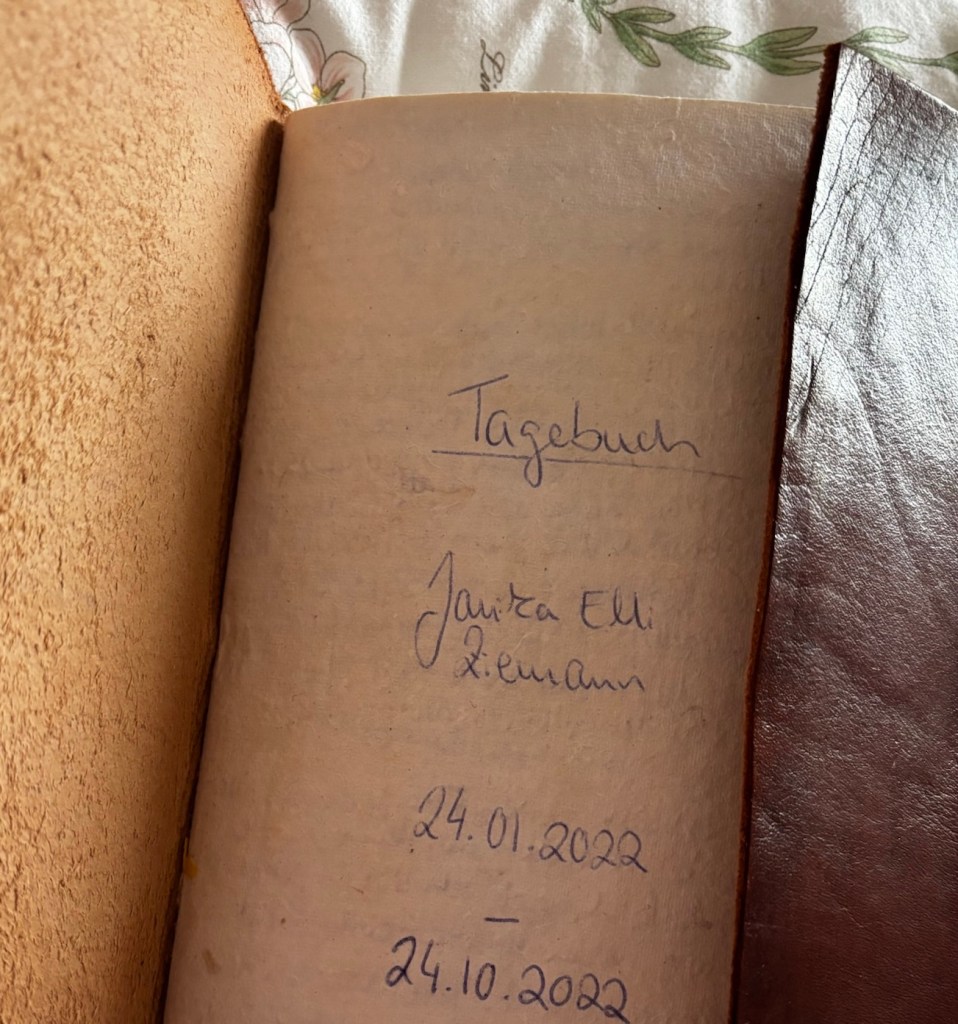 Tagebuch
Janika Elli
Ziemann
24.01.2022
–
24.10.2022